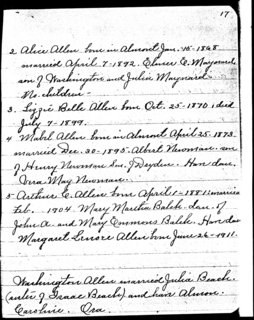 17
2. Alice Allen born in Almont Jan. 15-1868
married April. 7-1892. Elmer E. Maynard
son of Washington and Julia Maynard
No. children-
3. Lizzie Belle Allen born Oct. 25-1870, died
July 7-1899.
4 Mabel Allen born in Almont April 25-1873.
married Dec. 30-1895. Albert Newman. son
of Henry Newman Sr. of Dryden. Have dau.
Ora May Newman.
5 Arthur E. Allen born April 1-1881. married
Feb. 1904. Mary Martha Balch. dau. of
John A. and Mary Emmons Balch. Have dau
Margaret Lenore Allen born June 26-1911.
Washington Allen married Julia Beach.
(sister of Isaac Beach) and have Almon.
Caroline. Ora.